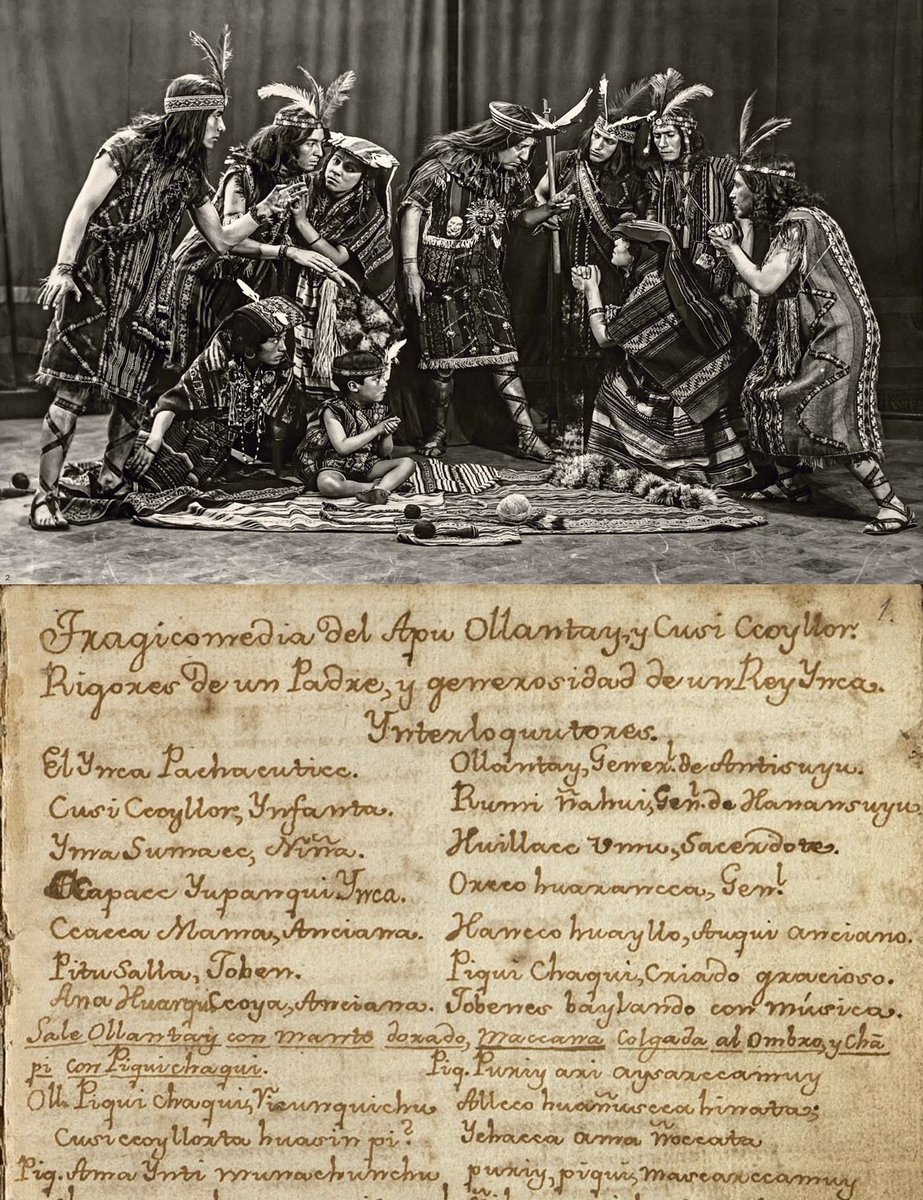 2
1.
Tragicomedia del Apu Ollantay, y Cusi Ccoyllor.
Rigores de un Padre, y generosidad de un Rey Ynca.
Ynterloqutores.
El Ynca Pachacuticc.
Cusi Ccoyllor, Ynfanta.
Yma Sumacc, Niña.
Ccapacc Yupanqui Ynca.
Ccacca Mama, Anciana.
Pitu Salla, Joben.
Ana Huarqui Ccoya, Anciana.
Ollantay, Gener.l de Antisuyu.
Rumi ñahui, Gen. de Hanansuyu
Huillacc Umu, Sacerdote.
Orcco huarancca, Gen.l
Hancco huayllo, Auqui anciano.
Piqui Chaqui, Criado gracioso.
Jobenes baylando con música.
Sale Ollantay con manto dorado, Maccana Colgada al Ombro, y Cha
pi con Piquichaqui.
Oll. Piqui chaqui,
Cusi ccoyllorta huasin pi?
Piq. Ama Ynti munachunchu
Piq. Puriy ari aysarccamuy
Allcco huañuscca hinata;
Ychacca ama ñoccata
puriy, piqui, mascarccamuy